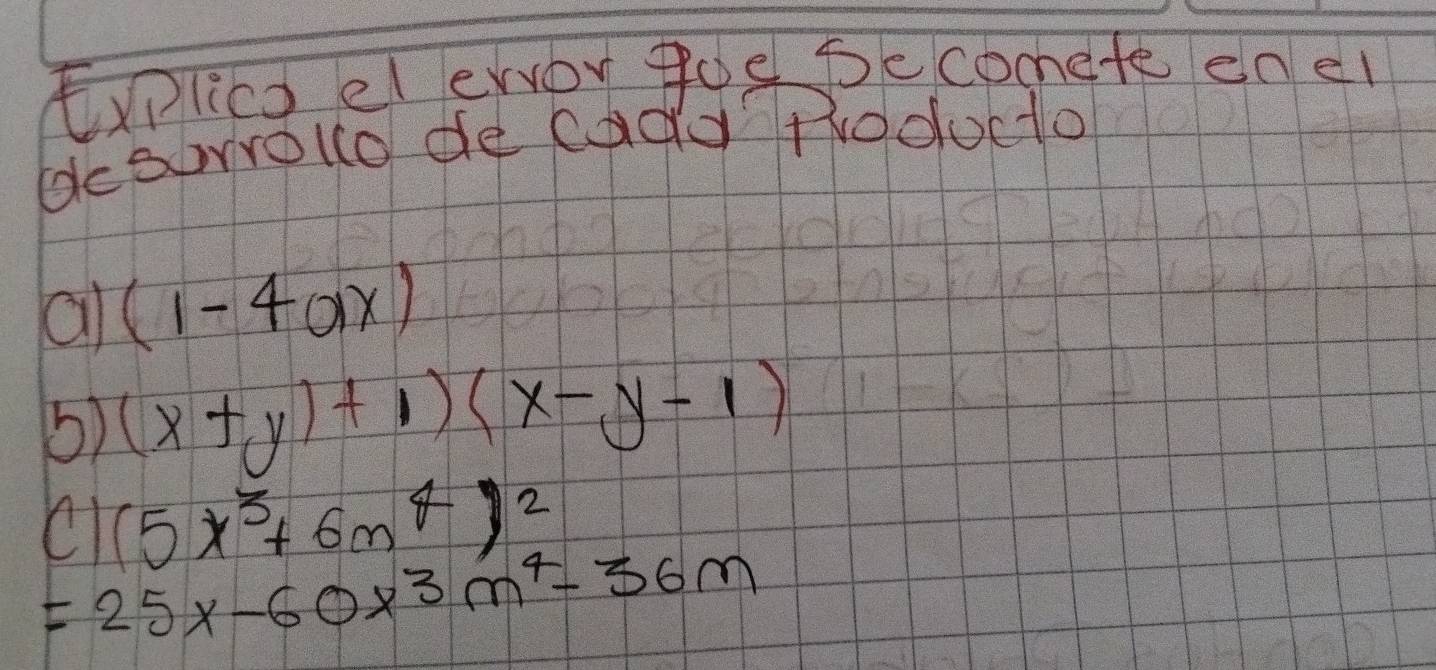 Explica el error que se comete en el
desarrollo de cada Producto
a) (1-4ax)
b) (x+y)+1)(x-y-1)
c) (5x³+6m⁴)²
=25x-60x³m⁴-36m